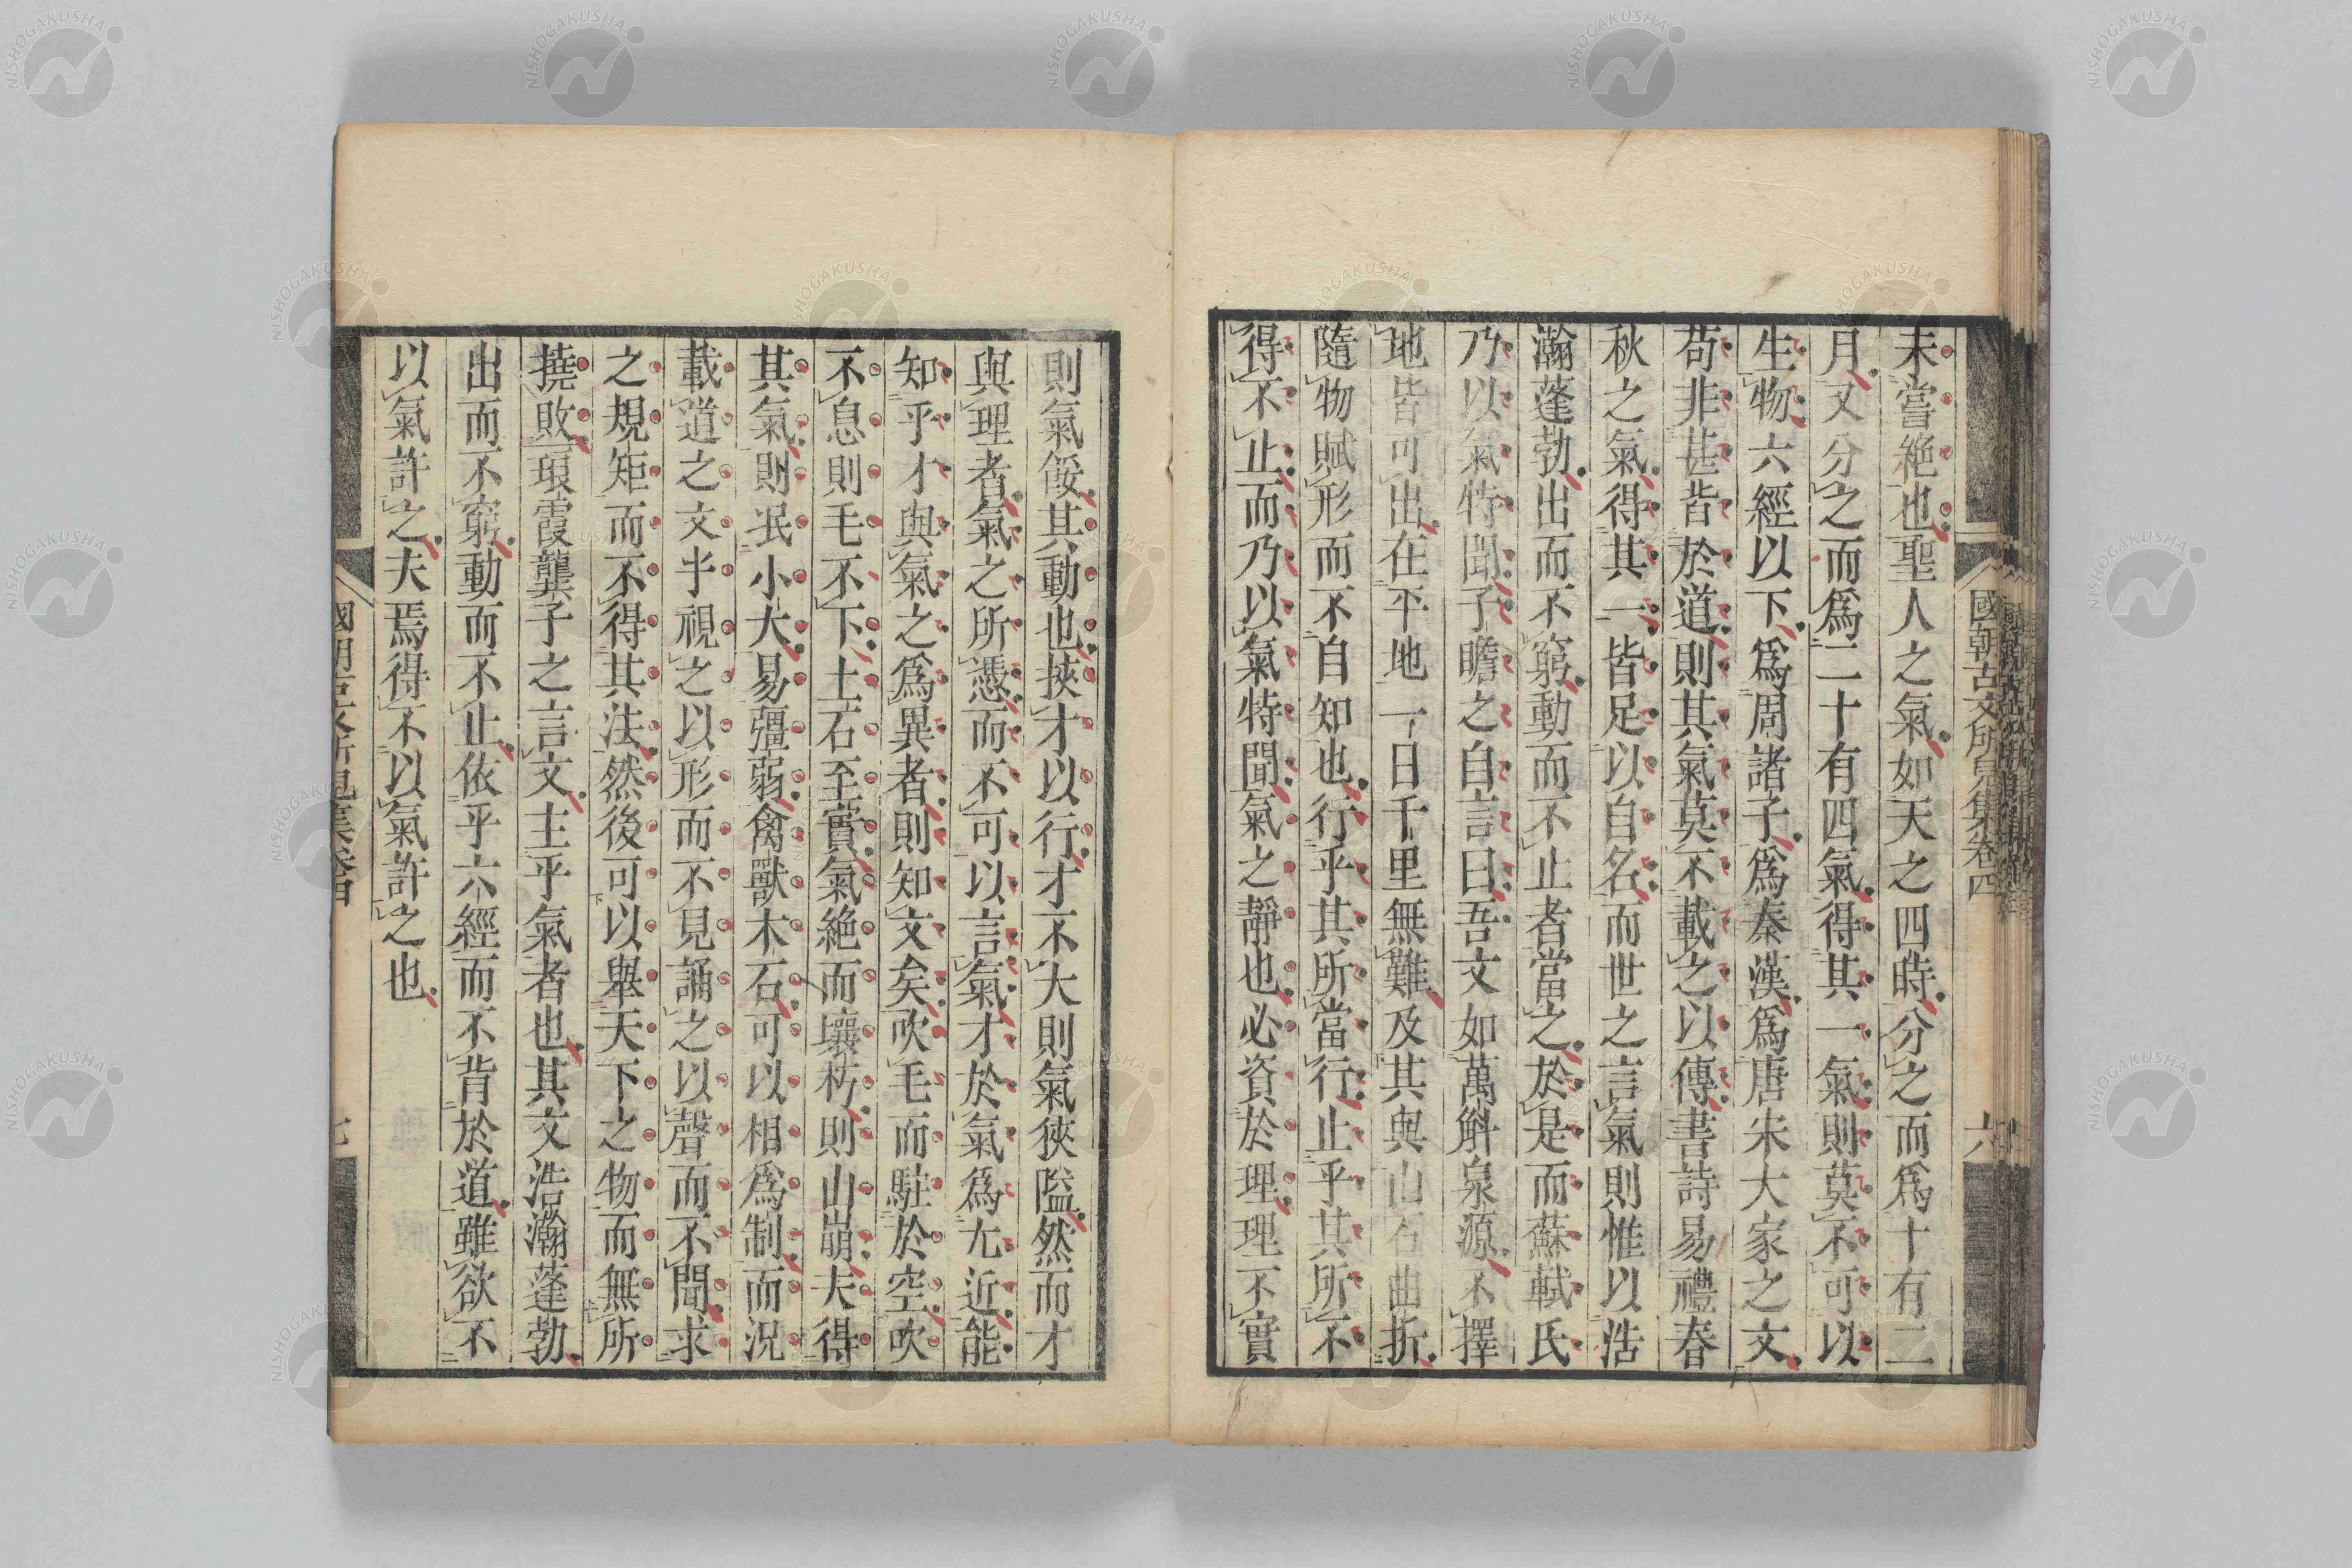 國朝古文所見集卷四
六
未嘗絕也聖人之氣如天之四時分之而爲十有二
月又分之而爲二十有四氣得其一氣則莫不可以
生物六經以下爲周諸子爲秦漢爲唐宋大家之文
苟非甚背於道則其氣莫不載之以傳書詩易禮春
秋之氣得其一皆足以自名而世之言氣則惟以浩
瀚蓬勃出而不窮動而不止者當之於是而蘇軾氏
乃以氣特聞子瞻之自言曰吾文如萬斛泉源不擇
地皆可出在平地一日千里無難及其與山石曲折
隨物賦形而不自知也行乎其所當行止乎其所不
得不止而乃以氣特聞氣之靜也必資於理理不實
則氣餒其動也挾才以行才不大則氣狹隘然而才
與理者氣之所憑而不可以言氣才於氣爲尤近能
知乎才與氣之爲異者則知文矣吹毛而駐於空吹
不息則毛不下土石至實氣絕而壤朽則山崩夫得
其氣則泯小大易彊弱禽獸木石可以相爲制而況
載道之文乎視之以形而不見誦之以聲而不聞求
之規矩而不得其法然後可以舉天下之物而無所
撓敗琅霞龔子之言文主乎氣者也其文浩瀚蓬勃
出而不窮動而不止依乎六經而不背於道雖欲不
以氣許之夫焉得不以氣許之也
國朝古文所見集卷四
七
NISHOGAKUSHA